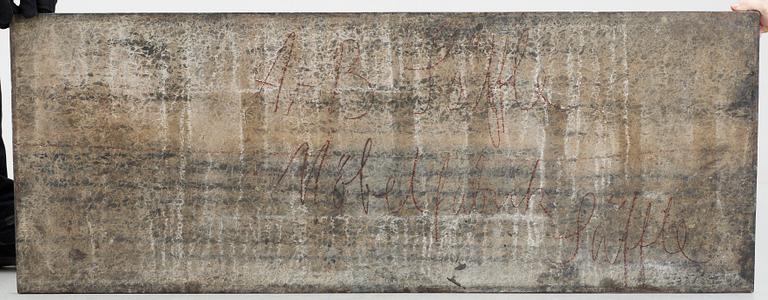 A.B. Säffle
Möbelfabrik
Säffle